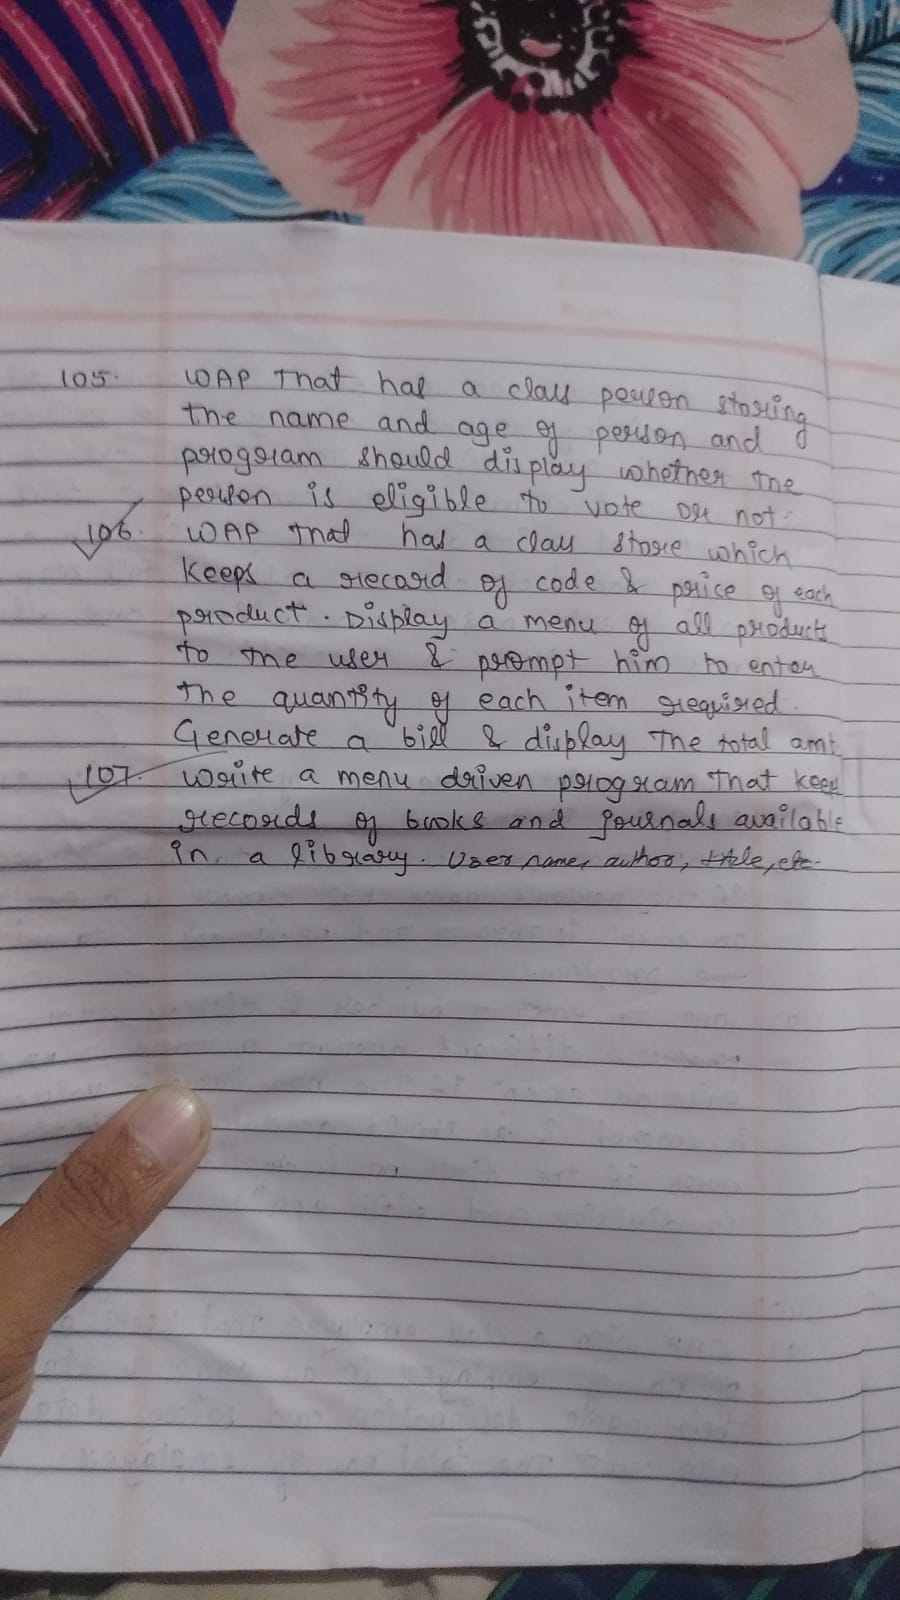 105. WAP That has a class person storing
the name and age of person and
program should display whether the
person is eligible to vote or not.
106. WAP That has a class store which
Keeps a record of code & price of each
product. Display a menu of all products
to the user & prompt him to enter
The quantity of each item required.
Generate a bill & display The total amt.
107. Write a menu driven program That keep
records of books and journals available
in a library. User name, author, title, etc.